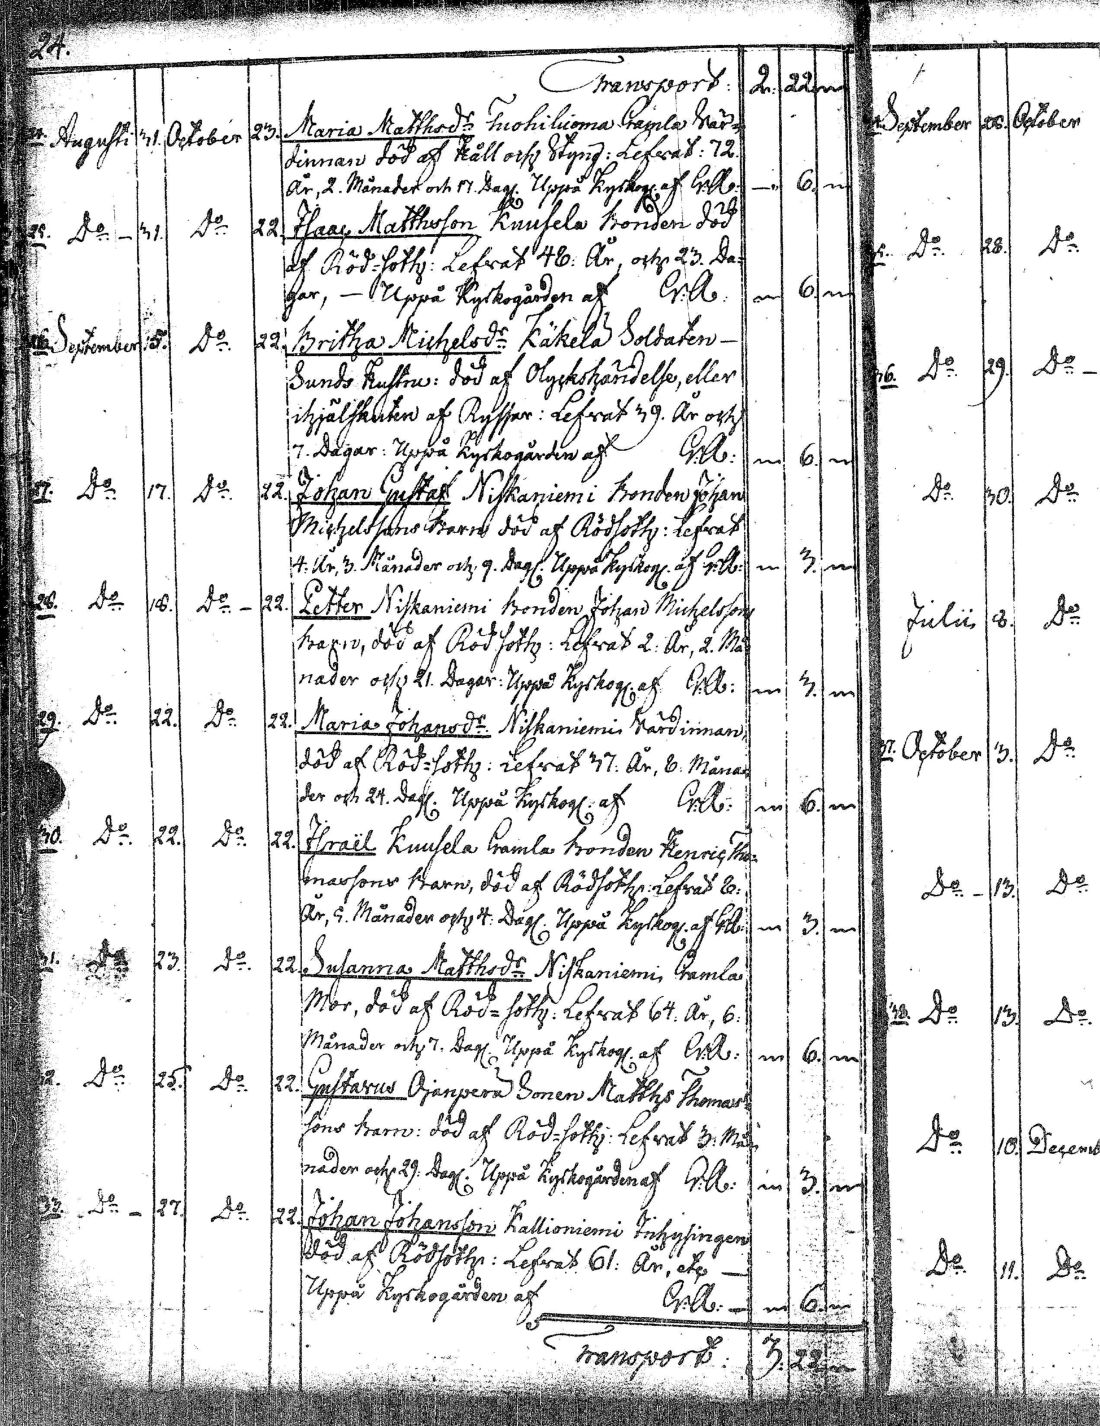 24.
Transport: 2. 22. m
24. Augusti 31. October 23. Maria Matthsdr. Tuohiluoma Gamla Vär=
dinnan död af Håll och Styng: Lefvat: 72.
År, 2. Månader och 17. Dag. Uppå Kyrkog. af Gr:R: — 6. m
25. Do — 31. Do 22. Isaac Matthsson Knusela Bonden död
af Röd=soth: Lefvat 48: År, och 23. Da=
gar, — Uppå Kyrkogården af Gr:R: m 6. m
26. September 15. Do 22. Britha Michelsdr. Käkelä Soldaten —
Sunds Hustru: död af Olyckshändelse, eller
ihjälskuten af Ryssar: Lefvat 39. År och
7. Dagar: Uppå Kyrkogården af Gr:R: m 6. m
27. Do 17. Do 22. Johan Gustaf Niskaniemi Bonden Johan
Michelssons Barn död af Rödsoth: Lefvat
4. År, 3. Månader och 9. Dag. Uppå Kyrkog. af Gr:R: m 3. m
28. Do 18. Do — 22. Petter Niskaniemi Bonden Johan Michelssons
Barn, död af Rödsoth: Lefvat 2: År, 2. Må=
nader och 21. Dagar: Uppå Kyrkog. af Gr:R: m 3. m
29. Do 22. Do 22. Maria Johansdr. Niskaniemi Värdinnan,
död af Röd=soth: Lefvat 37: År, 8: Måna=
der och 24. Dag. Uppå Kyrkog: af Gr:R: m 6. m
30. Do 22. Do 22. Israël Knusela Gamla Bonden Henric Tho=
massons Barn, död af Rödsoth: Lefvat 8:
År, 5. Månader och 4: Dag. Uppå Kyrkog. af Gr:R: m 3. m
31. Do 23. Do 22. Susanna Matthsdr. Niskaniemi Gamla
Mor, död af Röd=soth: Lefvat 64: År, 6:
Månader och 7. Dag. Uppå Kyrkog. af Gr:R: m 6. m
32. Do 25. Do 22. Gustavus Ojanperä Sonen Matths Thomas=
sons Barn: död af Röd=soth: Lefvat 3: Må=
nader och 29: Dag. Uppå Kyrkogården af Gr:R: m 3. m
33. Do — 27. Do 22. Johan Johansson Kallioniemi Inhysingen
död af Rödsoth: Lefvat 61: År, etc —
Uppå Kyrkogården af Gr:R: — m 6. m
Transport: 3. 22. m
September 28. October
Do 28. Do
36. Do 29. Do —
Do 30. Do
Julii 8. Do
37. October 3. Do
Do — 13. Do
38. Do 13. Do
Do 10. Decemb
Do 11. Do